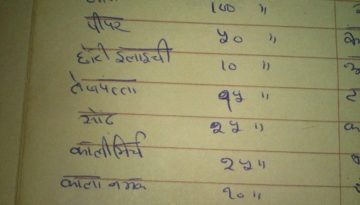 १०० "
पीपर ५० "
छोटी इलाइची १० "
तेजपत्ता २५ "
सोंठ २५ "
कालीमिर्च २५ "
काला नमक २० "